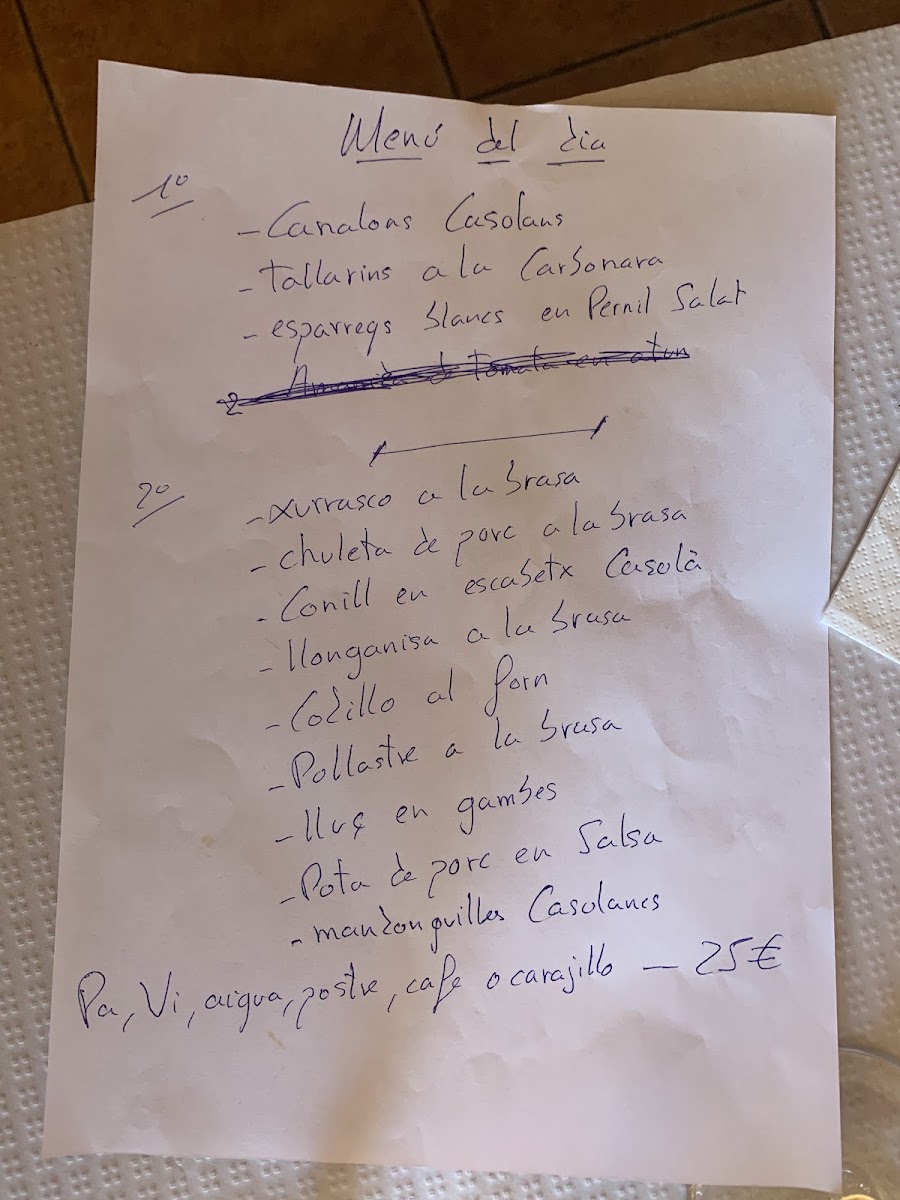 Menú del dia
1º
- Canalons Casolans
- tallarins a la Carbonara
- esparregs blancs en Pernil Salat
Amanida de tomata en atun
2º
- xurrasco a la brasa
- chuleta de porc a la brasa
- Conill en escabetx Casolà
- llonganisa a la brasa
- Codillo al forn
- Pollastre a la brasa
- lluç en gambes
- Pota de porc en Salsa
- mandonguilles Casolanes
Pa, Vi, aigua, postre, cafe o carajillo — 25€